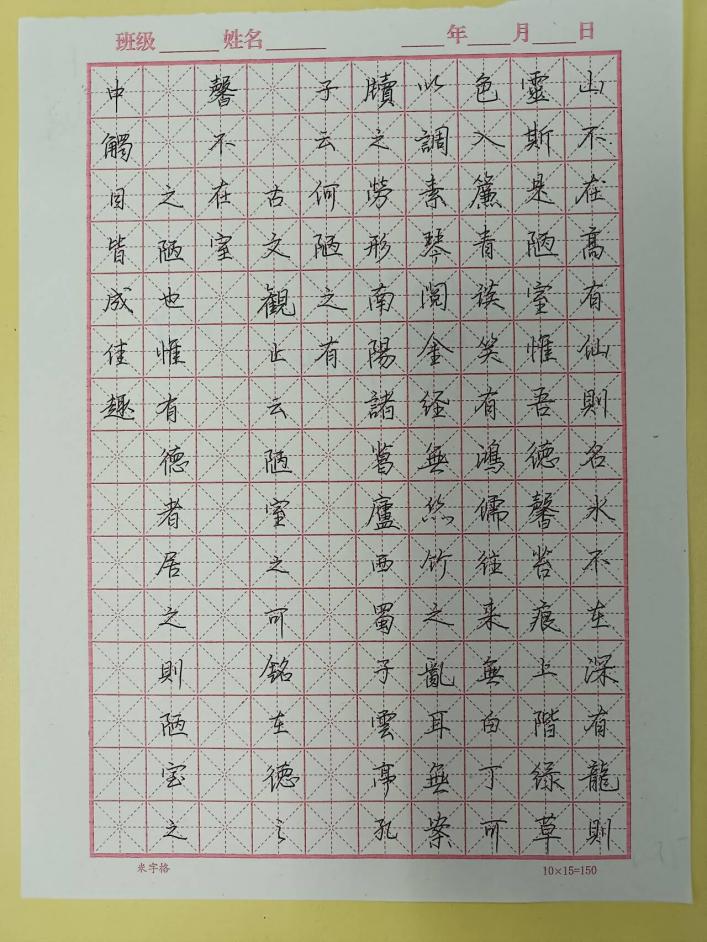 班级 姓名 年 月 日
山不在高有仙則名水不在深有龍則
靈斯是陋室惟吾德馨苔痕上階绿草
色入簾青谈笑有鴻儒往来無白丁可
以調素琴閲金经無丝竹之亂耳無案
牘之勞形南陽諸葛廬西蜀子雲亭孔
子云何陋之有
古文觀止云陋室之可銘在德之
馨不在室
之陋也惟有德者居之則陋室之
中觸目皆成佳趣
米字格
10×15=150